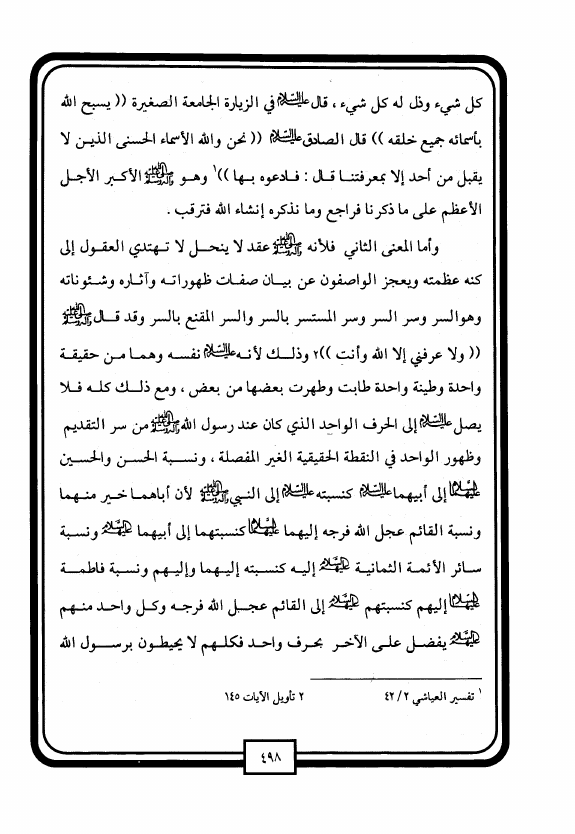 كل شيء وذل له كل شيء ، قال عليه السلام في الزيارة الجامعة الصغيرة (( يسبح الله
بأسمائه جميع خلقه )) قال الصادق عليه السلام (( نحن والله الأسماء الحسنى الذيـن لا
يقبل من أحد إلا بمعرفتنـا قـال : فـادعوه بـها ))١ وهـو صلى الله عليه وآله الأكبر الأجـل
الأعظم على ما ذكرنا فراجع وما نذكره إنشاء الله فترقب .
وأما المعنى الثاني فلأنه صلى الله عليه وآله عقد لا ينحـل لا تـهتدي العقول إلى
كنه عظمته ويعجز الواصفون عن بيـان صفـات ظهوراتـه وآثـاره وشـئوناته
وهوالسر وسر السر وسر المستسر بالسر والسر المقنع بالسر وقد قـال صلى الله عليه وآله
(( ولا عرفني إلا الله وأنت ))٢ وذلـك لأنـه عليه السلام نفسـه وهمـا مـن حقيقـة
واحدة وطينة واحدة طابت وطهرت بعضها من بعض ، ومع ذلـك كلـه فـلا
يصل عليه السلام إلى الحرف الواحد الذي كان عند رسول الله صلى الله عليه وآله من سر التقديم
وظهور الواحد في النقطة الحقيقية الغير المفصلة ، ونسـبة الحسـن والحسـين
عليهما السلام إلى أبيهما عليه السلام كنسبته عليه السلام إلى النبي صلى الله عليه وآله لأن أباهمـا خـير منـهما
ونسبة القائم عجل الله فرجه إليهما عليهما السلام كنسبتهما إلى أبيهما عليهم السلام ونسـبة
سـائر الأئمـة الثمانيـة عليهم السلام إليـه كنسـبته إليـهما وإليـهم ونسـبة فاطمـة
عليها السلام إليهم كنسبتهم عليهم السلام إلى القائم عجـل الله فرجـه وكـل واحـد منـهم
عليهم السلام يفضـل علـى الآخـر بحـرف واحـد فكلـهم لا يحيطـون برسـول الله
١ تفسير العياشي ٢ / ٤٢
٢ تأويل الآيات ١٤٥
٤٩٨